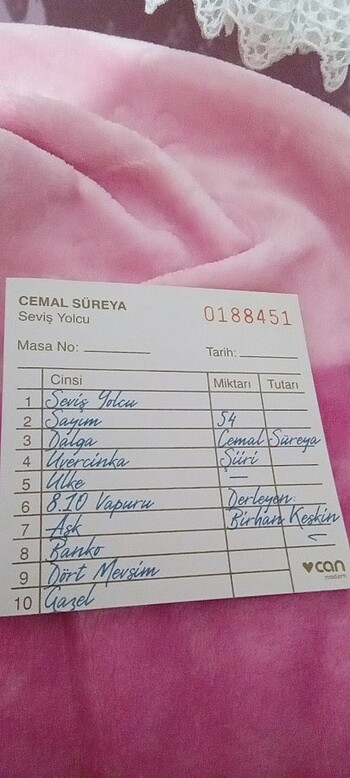 CEMAL SÜREYA
0188451
Seviş Yolcu
Masa No:
Tarih:
Cinsi Miktarı Tutarı
1 Seviş Yolcu
2 Sayım 54
3 Dalga Cemal Süreya
4 Üvercinka Şiiri
5 Ülke —
6 8.10 Vapuru Derleyen:
7 Aşk Birhan Keskin
8 Banko
9 Dört Mevsim
10 Gazel
can
modern